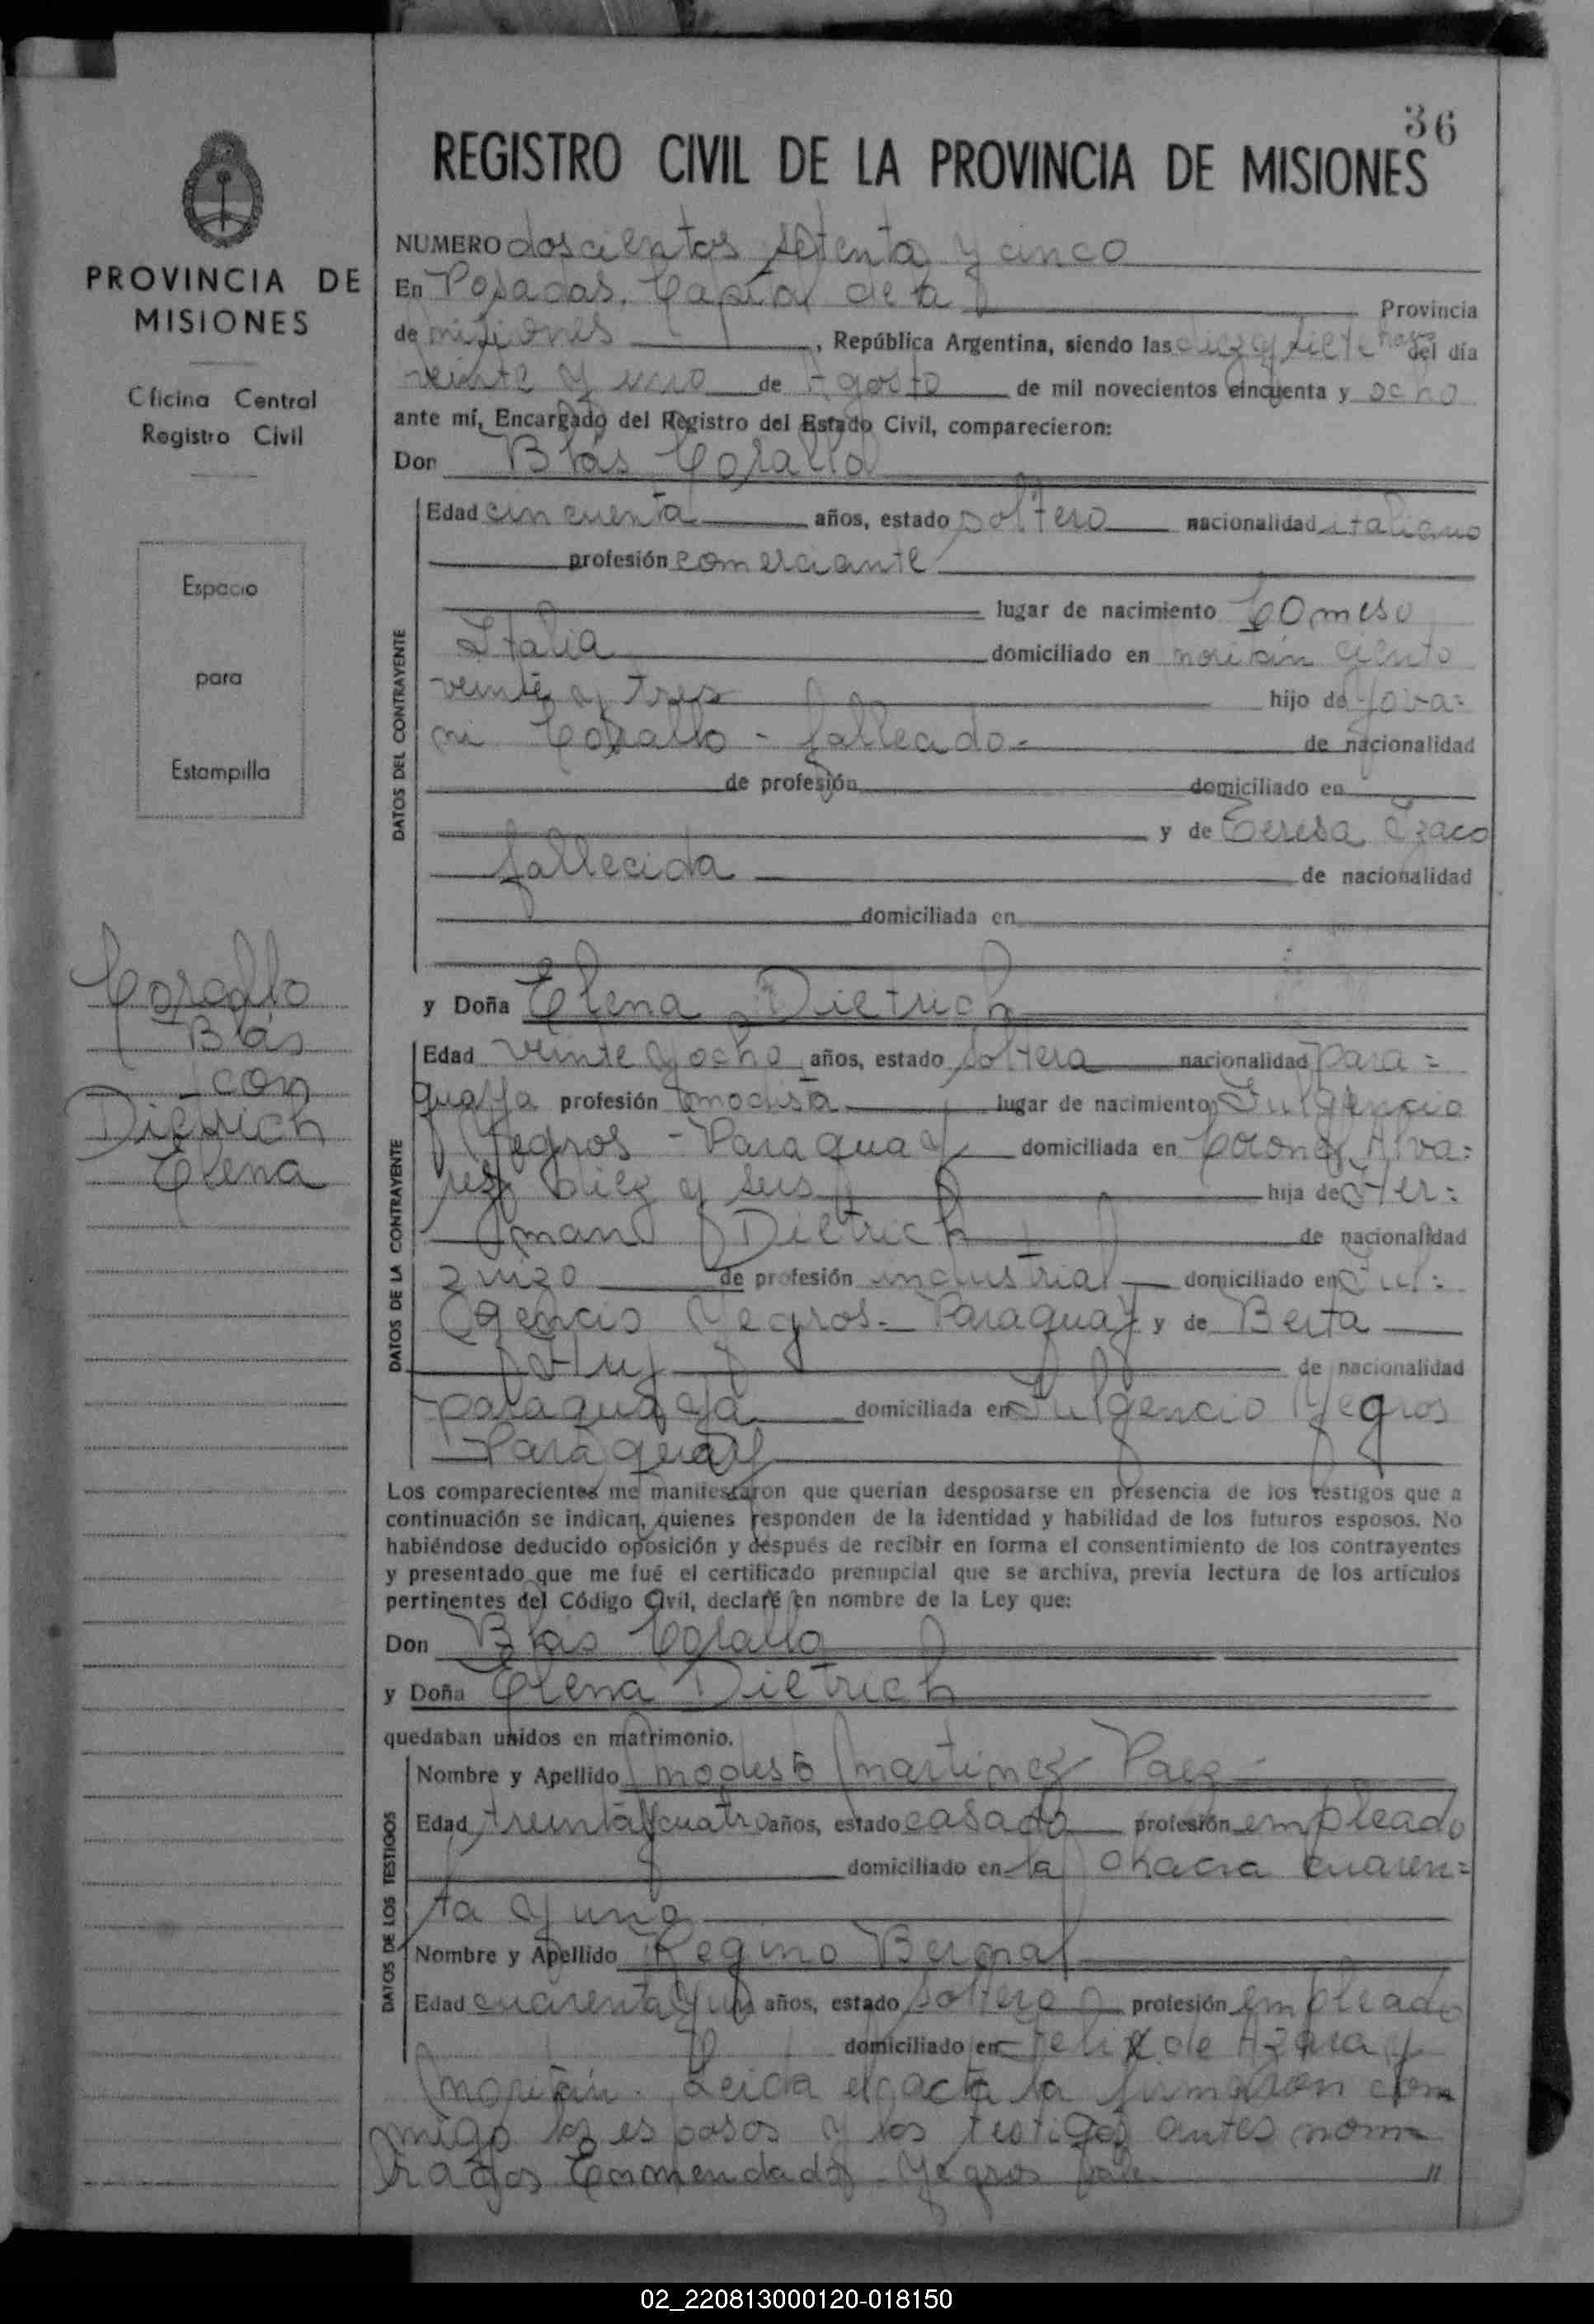 36
REGISTRO CIVIL DE LA PROVINCIA DE MISIONES
PROVINCIA DE
MISIONES
Oficina Central
Registro Civil
Espacio
para
Estampilla
Corallo
Blás
con
Dietrich
Elena
NUMERO doscientos setenta y cinco
En Posadas, Capital de la Provincia
de misiones, República Argentina, siendo las diez y siete horas del día
veinte y uno de Agosto de mil novecientos cincuenta y ocho
ante mí, Encargado del Registro del Estado Civil, comparecieron:
Don Blás Corallo
DATOS DEL CONTRAYENTE
Edad cincuenta años, estado soltero nacionalidad italiano
profesión comerciante
lugar de nacimiento Comeso
Italia domiciliado en moritán ciento
veinte y tres hijo de Jova=
ni Corallo - fallecido - de nacionalidad
de profesión domiciliado en
y de Teresa
fallecida de nacionalidad
domiciliada en
y Doña Elena Dietrich
DATOS DE LA CONTRAYENTE
Edad veinte y ocho años, estado soltera nacionalidad para=
guaya profesión modista lugar de nacimiento Fulgencio
Yegros - Paraguay domiciliada en Coronel Alva=
rez diez y seis hija de Her=
man Dietrich de nacionalidad
zuizo de profesión industrial domiciliado en Ful=
gencio Yegros - Paraguay y de Berta
de nacionalidad
paraguaya domiciliada en Fulgencio Yegros
Paraguay
Los comparecientes me manifestaron que querían desposarse en presencia de los testigos que a
continuación se indican, quienes responden de la identidad y habilidad de los futuros esposos. No
habiéndose deducido oposición y después de recibir en forma el consentimiento de los contrayentes
y presentado que me fué el certificado prenupcial que se archiva, previa lectura de los artículos
pertinentes del Código Civil, declaré en nombre de la Ley que:
Don Blás Corallo
y Doña Elena Dietrich
quedaban unidos en matrimonio.
DATOS DE LOS TESTIGOS
Nombre y Apellido modesto martinez Paez
Edad treinta y cuatro años, estado casado profesión empleado
domiciliado en la chacra cuaren=
ta y uno
Nombre y Apellido Regino Bernal
Edad cuarenta y un años, estado soltero profesión empleado
domiciliado en Felix de Azara y
moritán. Leida el acta la firmaron con
migo los esposos y los testigos antes nom
brados Enmendado - Yegros vale "
02_220813000120-018150